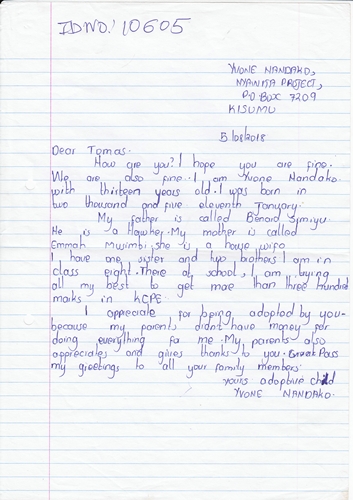 ID NO: 10605
YVONE NANDAKO,
NYANZA PROJECT,
P.O BOX 7209
KISUMU
5/08/2018
Dear Tomas.
How are you? I hope you are fine.
We are also fine. I am Yvone Nandako
with thirteen years old. I was born in
two thousand and five eleventh January.
My father is called Benard
He is a Hawker. My mother is called
Emmah Musimbi she is a house wife
I have one sister and two brothers I am in
class eight. There at school, I am trying
all my best to get more than three hundred
marks in KCPE.
I appreciate for being adopted by you
because my parents didn't have money for
doing everything for me. My parents also
appreciates and gives thanks to you. Great Pass
my greetings to all your family members.
yours adoptive child
YVONE NANDAKO.